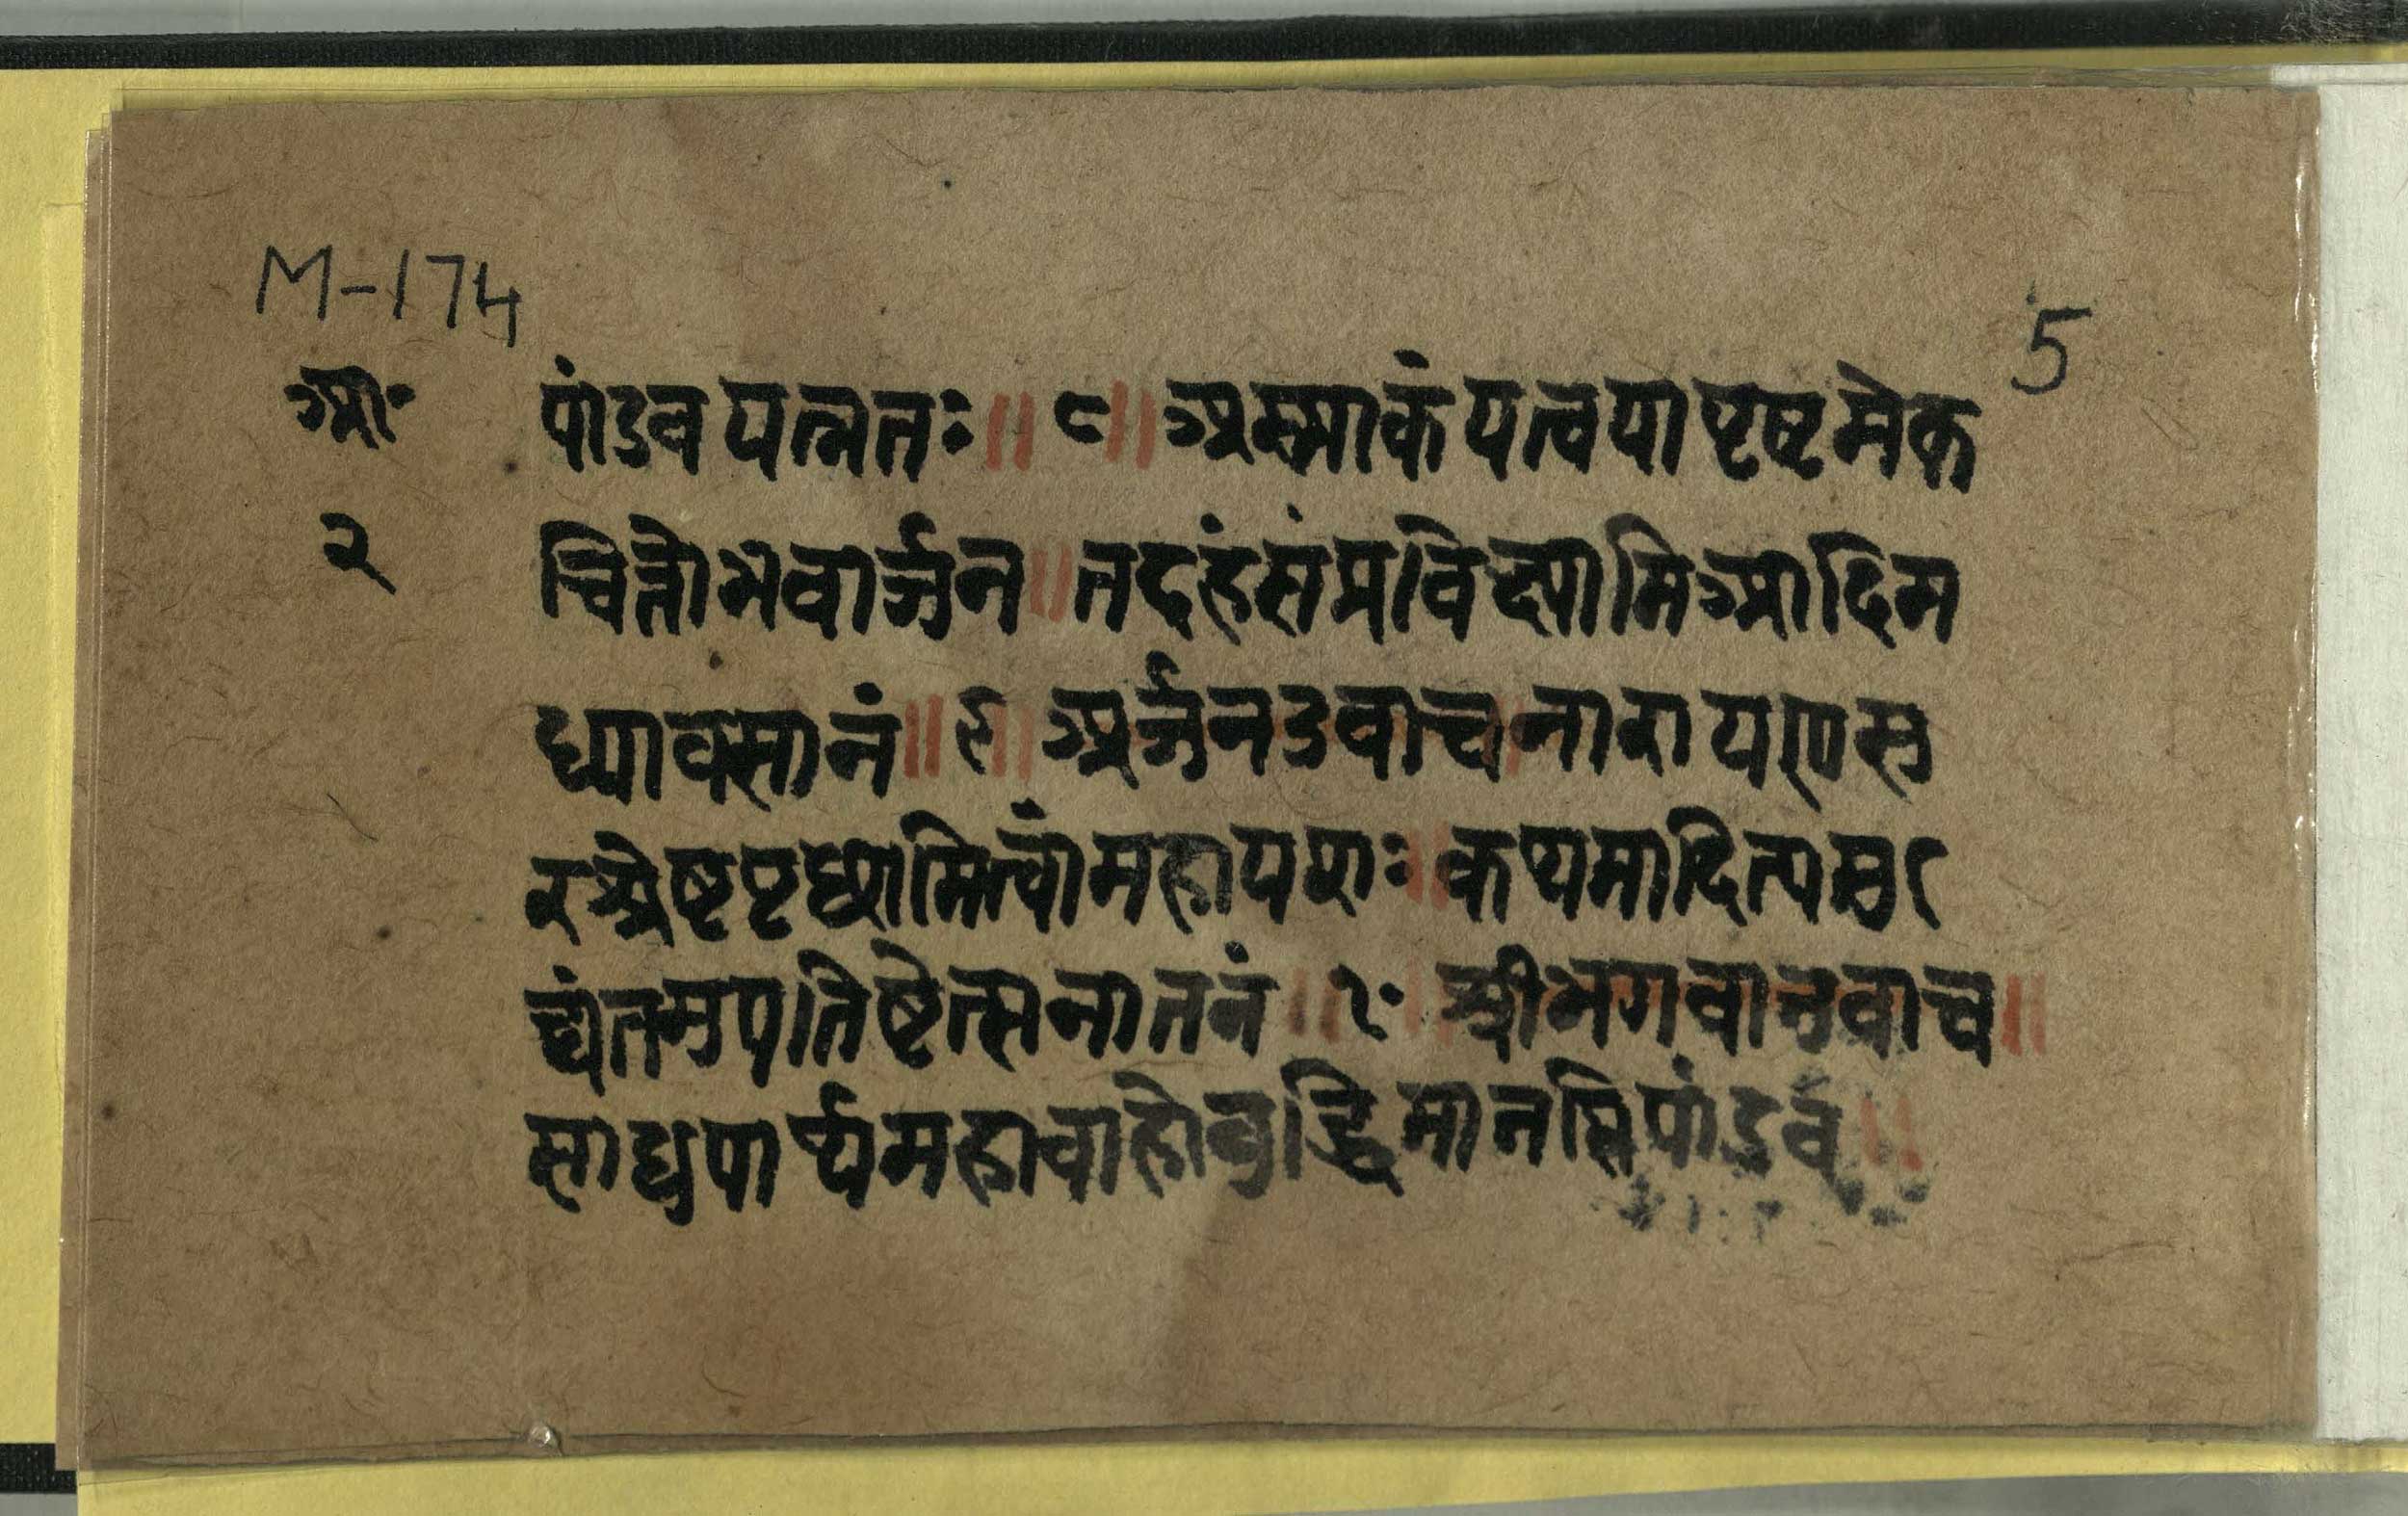 M-174
5
आ॰
२
पांडव यत्नतः ॥ ८ ॥ अस्माकं यत्वया पृष्टमेक
चित्तो भवार्जुन ॥ तदहं संप्रविक्ष्यामि आदिम
ध्यावसानं ॥ ९ ॥ अर्जुन उवाच ॥ नारायण सु
रश्रेष्ट पृछामि त्वां महायशः ॥ कथमादित्यमु
द्यंतमुपतिष्टेत्सनातनं ॥ १० ॥ श्रीभगवानुवाच ॥
साधु पार्थ महावाहो बुद्धिमानसि पांडव ॥